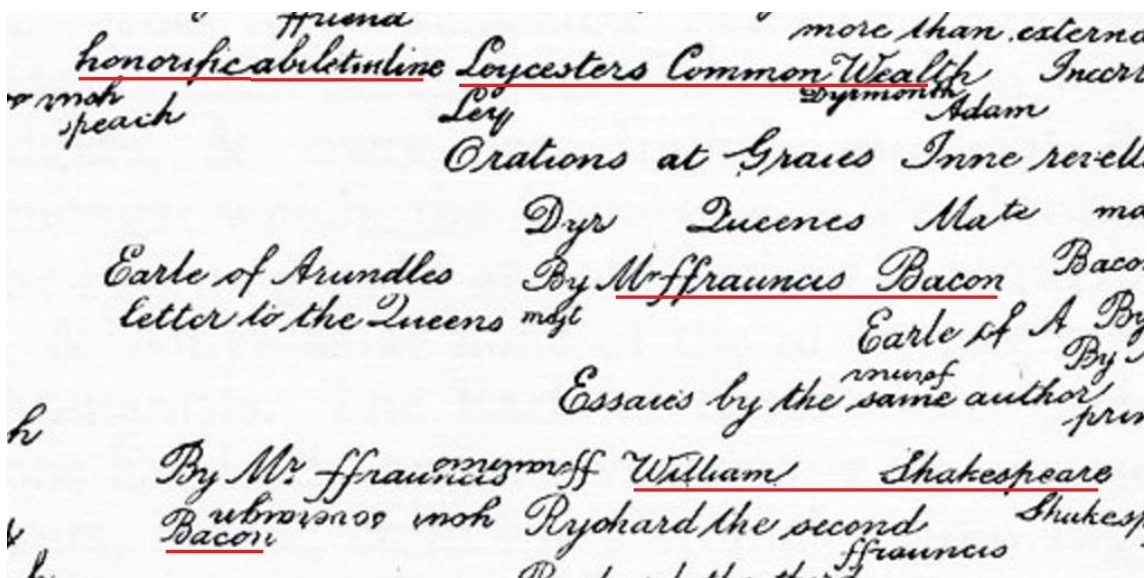 ffriend more than externa
honorificabiletudine Loycesters Common Wealth Incer
speach Ley Dyrmonth Adam
Orations at Graies Inne revells
Dyr Queenes Mate
Earle of Arundles By Mr ffrauncis Bacon Bacon
letter to the Queens mast
Earle of A By
By
Essaies by the same author
prin
By Mr ffrauncis William Shakespeare
Bacon Rychard the second Shakesp
ffrauncis